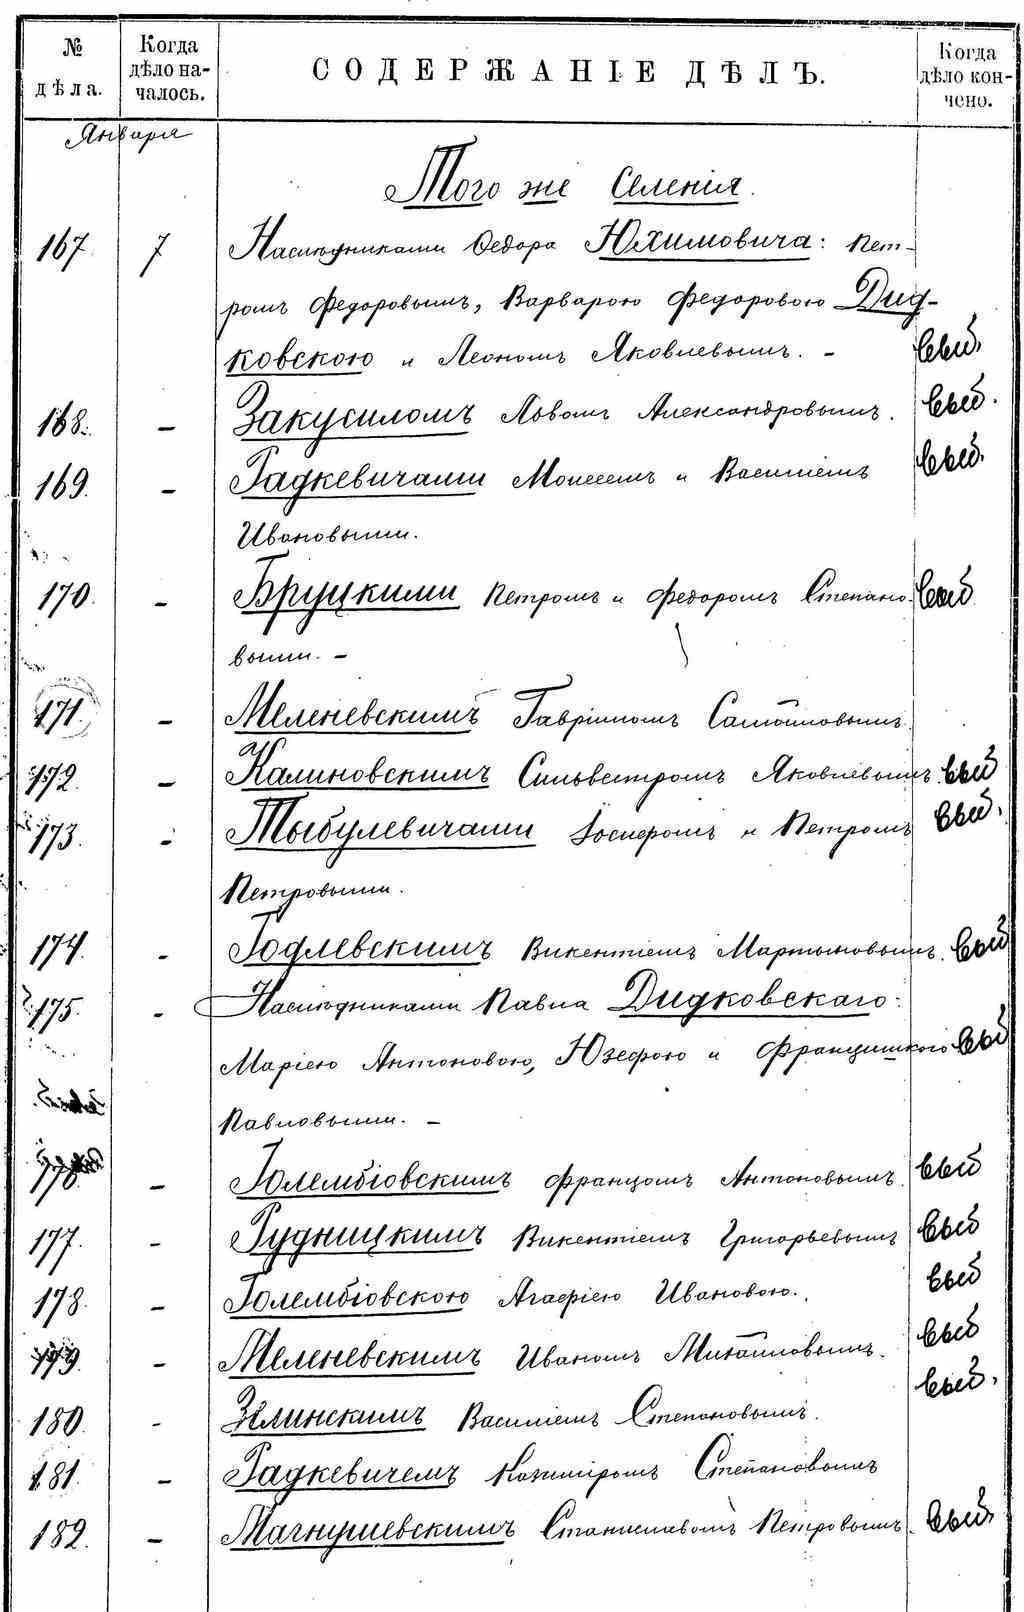 № дѣла.
Когда дѣло на-
чалось.
СОДЕРЖАНІЕ ДѢЛЪ.
Когда дѣло кон-
чено.
Января
Того же Селенія.
167. 7 Наслѣдниками Ѳедора Юхимовича: Пет-
ромъ Федоровымъ, Варварою Федоровою Дид-
ковскою и Леономъ Яковлевымъ. -
168. - Закусиломъ Львомъ Александровымъ.
169. - Радкевичами Моисеемъ и Василіемъ
Ивановыми.
170. - Бруцкими Петромъ и Федоромъ Степано-
выми. -
171. - Меленевскимъ Гавріиломъ Самойловымъ
172. - Калиновскимъ Сильвестромъ Яковлевымъ.
173. - Тыбулевичами Іосифомъ и Петромъ
Петровыми.
174. - Годлевскимъ Викентіемъ Мартыновымъ.
175. - Наслѣдниками Павла Дидковскаго:
Маріею Антоновою, Юзефою и Францишкою
Павловыми. -
176. -Голембіовскимъ Францомъ Антоновымъ.
177. - Рудницкимъ Викентіемъ Григорьевымъ
178. - Голембіовскою Агафіею Ивановою.
179. - Меленевскимъ Иваномъ Михайловымъ.
180. - Зелинскимъ Василіемъ Степановымъ.
181. - Радкевичемъ Казиміромъ Степановымъ
182. - Магнушевскимъ Станиславомъ Петровымъ.